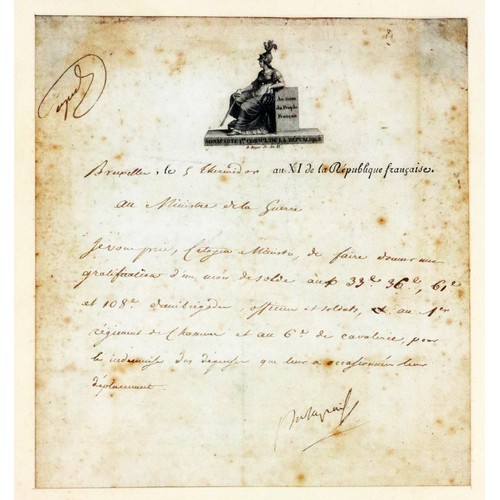 Au nom
du Peuple
Français
BONAPARTE 1er CONSUL DE LA RÉPUBLIQUE
Bruxelles, le 5 thermidor an XI de la République française.
Au Ministre de la Guerre
Je vous prie, Citoyen Ministre, de faire donner une
gratification d'un mois de solde aux 33e 36e, 61e
et 108e demi brigades, officiers et soldats, & au 1er
régiment de Chasseurs et au 6e de cavalerie, pour
les indemniser des dépenses que leur a occasionnées leur
déplacement